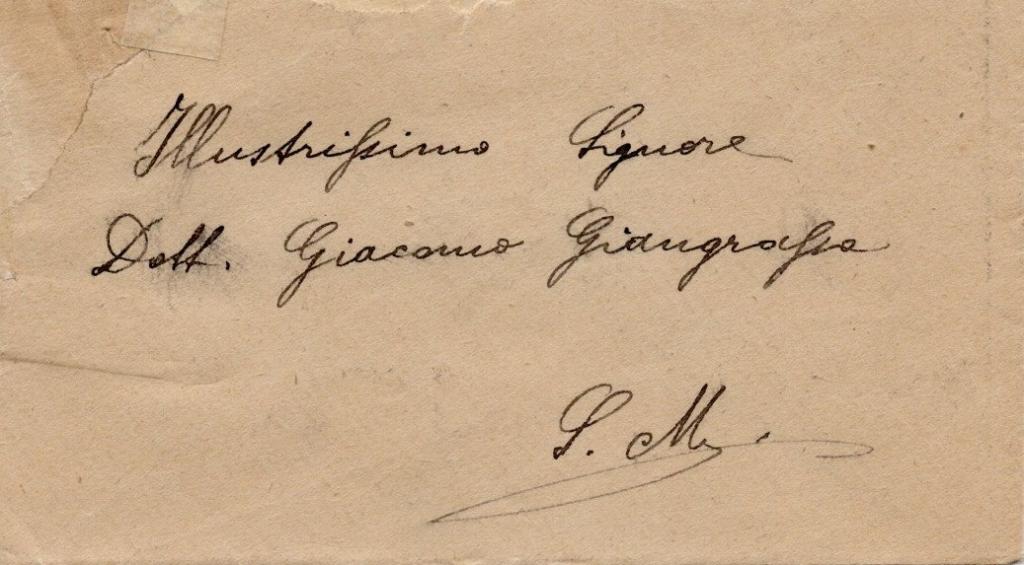 Illustrissimo Signore
Dott. Giacomo Giangrassa
S. M.